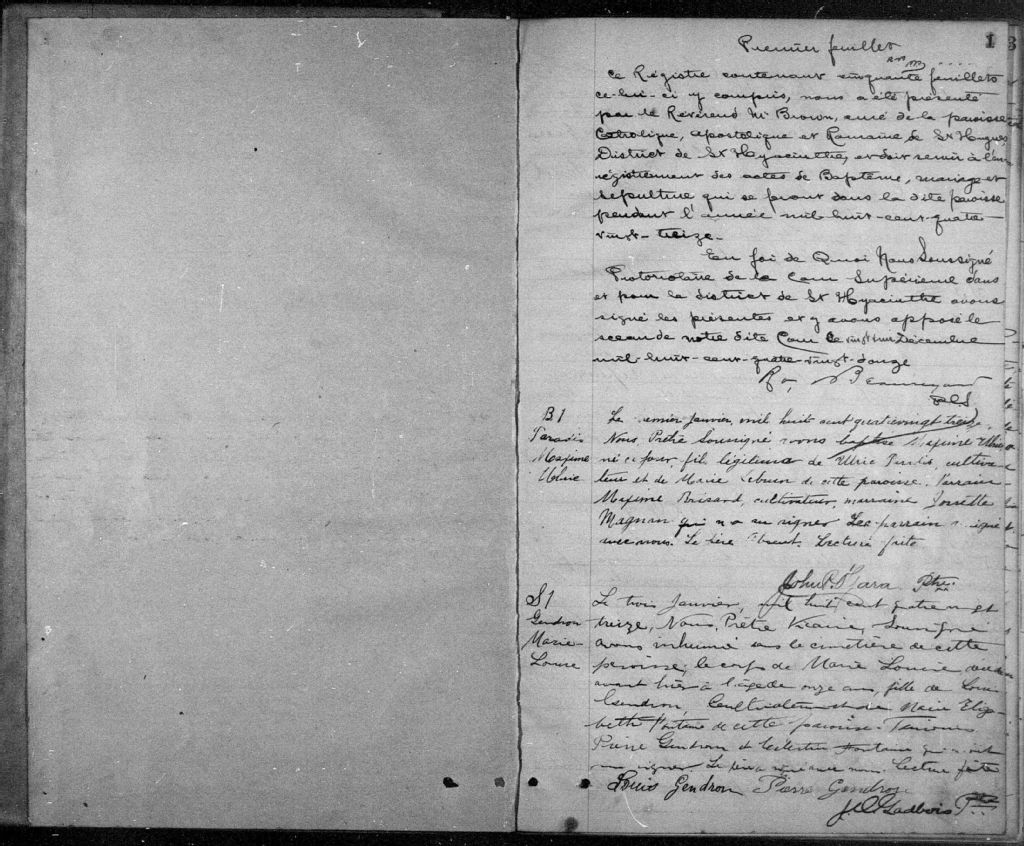 Premier feuillet
1
Ce Régistre contenant cinquante feuillets
ce-lui-ci y compris, nous a été présenté
par le Révérend Mr Brown, curé de la paroisse
Catholique, apostolique et Romaine de St Hugues
District de St Hyacinthe, et doit servir à l'en-
régistrement des actes de Baptême, mariage et
sépulture qui se feront dans la dite paroisse
pendant l'année mil huit-cent-quatre
vingt-treize.
En foi de Quoi Nous Soussigné
Protonotaire de la Cour Supérieure dans
et pour le district de St Hyacinthe avons
signé les présentes et y avons apposé le
sceau de notre dite Cour le vingt Décembre
mil-huit-cent-quatre vingt-douze
B.1
Paradis
Maxime
Ulric
Le premier Janvier mil huit cent quatrevingt treize,
Nous, Prêtre soussigné avons baptisé Maxime Ulric
né ce jour, fils légitime de Ulric Paradis, cultiva-
teur et de Marie Lebrun de cette paroisse. Parrain
Maxime Brisard, cultivateur, marraine Josette
Magnan qui n'a su signer. Le parrain a signé
avec nous. Le père absent. Lecture faite
John P. O'Gara Ptre
S1
Gendron
Marie-
Louise
Le trois Janvier, mil huit cent quatre vingt
treize, Nous, Prêtre Vicaire, Soussigné
avons inhumé dans le cimetière de cette
paroisse, le corps de Marie Louise décédée
avant hier à l'âge de onze ans, fille de Louis
Gendron, Cultivateur et de Marie Eliza-
beth Fontaine de cette paroisse. Témoins
Pierre Gendron et Célestin Fontaine qui n'ont
su signer. Le père a signé avec nous. Lecture faite
Louis Gendron Pierre Gendron
J. O. Gadbois Ptre